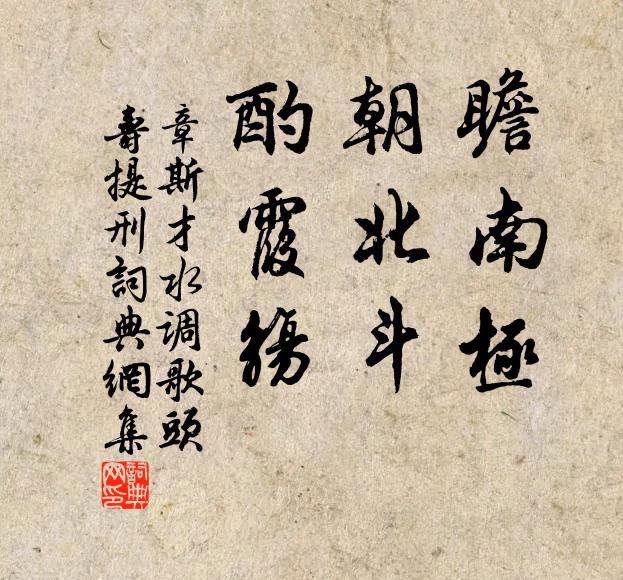 瞻南極
朝北斗
酌霞觴
章斯才水调歌頭
壽提刑詞典網集
詞典网印